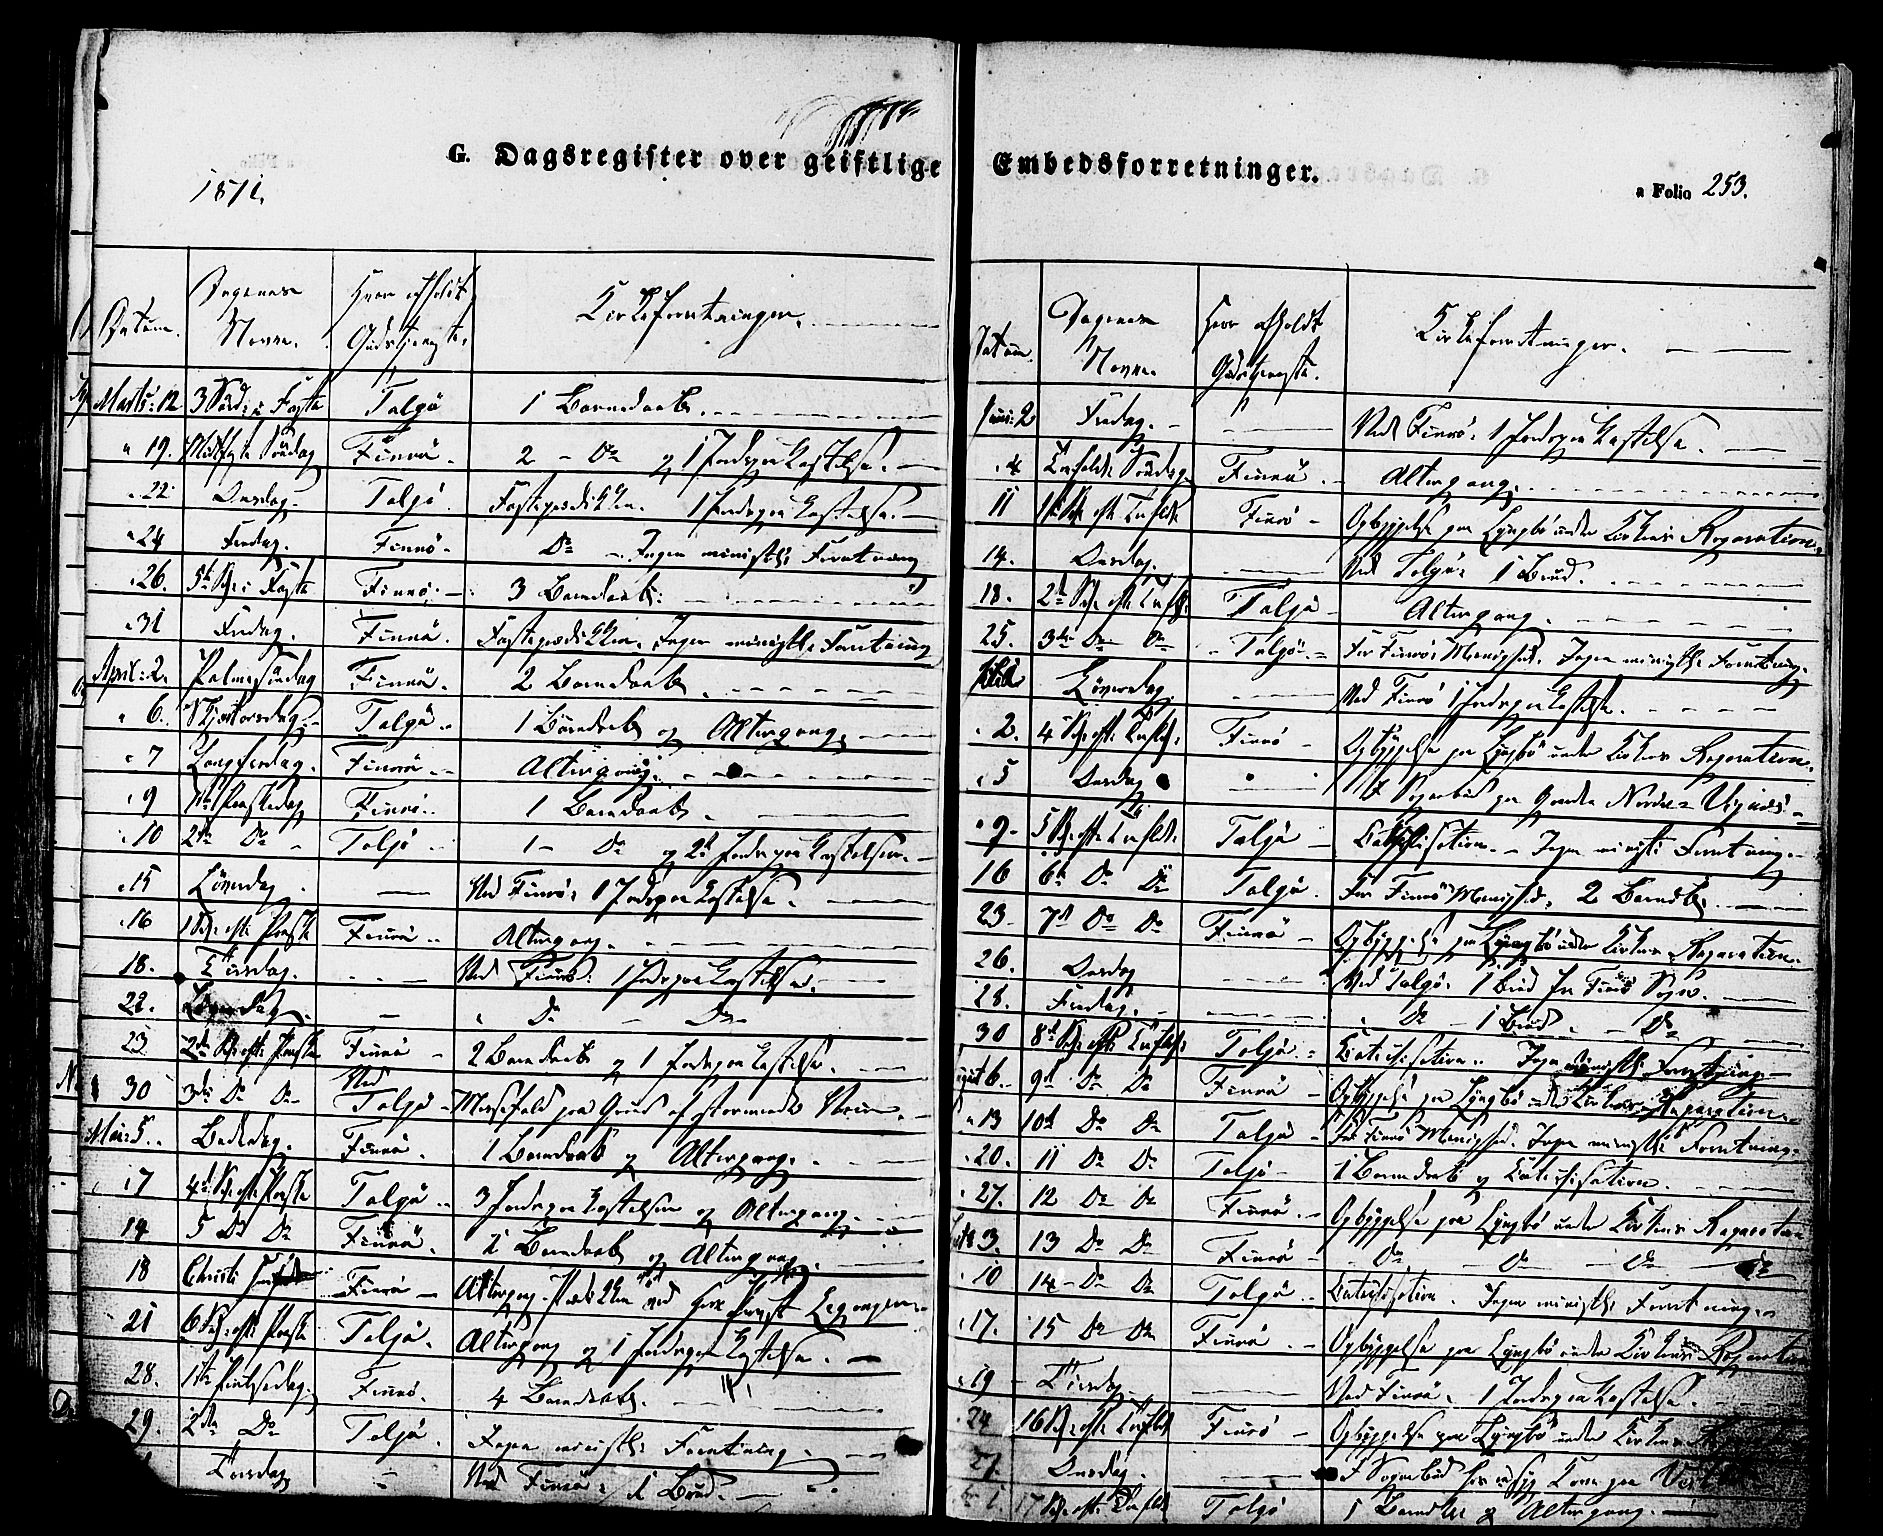 G. Dagsregister over geistlige Embedsforretninger.
1871.
a Folio 253.
Datum. Dagenes Navne. Hvor afholdt Gudstjeneste. Kirkeforretninger.
Marts: 12 3 Sønd: i Faste Talgö 1 Barnedaab.
" 19. Midfaste Søndag Finnö. 2 - Do og 1 Jordpaakastelse.
" 22 Onsdag. Talgö Fasteprædikken. 1 Jordpaakastelse.
" 24 Fredag. Finnö. Do Ingen ministl: Forretning
" 26. 5te S: i Faste Finnö. 3 Barnedaab.
" 31 Fredag. Finnö. Fasteprædikken. Ingen ministl: Forretning
April: 2. Palmesøndag Finnö. 2 Barnedaab.
" 6. Skjærtorsdag. Talgö 1 Barnedaab og Altergang.
" 7 Langfredag. Finnö. Altergang.
" 9 1ste Paaskedag Finnö. 1 Barnedaab.
" 10 2den Do Talgö 1 - Do og 2 Jordpaakastelser.
" 15 Løverdag. Ved Finnö: 1 Jordpaakastelse.
" 16 1 S: efter Paaske Finnö. Altergang.
18. Tirsdag. Ved Finnö: 1 Jordpaakastelse.
22. Løverdag Do Do
23 2den S: efter Paaske Finnö 2 Barnedaab og 1 Jordpaakastelse.
30 3die Do Do Ved Talgö Messefald paa Grund af stormende Veir.
Mai: 5. Bededag. Finnö. 1 Barnedaab og Altergang.
" 7 4de S: efter Paaske Talgö 3 Jordpaakastelser og Altergang.
14 5 Do Do Finnö. 2 Barnedaab og Altergang.
18 Christi Finnö Altergang. Prædikken ved Hr.
21 6 S: efter Paaske Talgö. Altergang og 1 Jordpaakastelse.
28. 1ste Pintsedag. Finnö. 4 Barnedaab.
29. 2den Do Talgö. Ingen ministl: Forretning.
Torsdag Ved Finnö: 1 Brud.
Datum. Dagenes Navne. Hvor afholdt Gudstjeneste. Kirkeforretninger.
Juni: 2 Fredag. Ved Finnö: 1 Jordpaakastelse.
" 4 Trefoldr: Søndag Finnö. Altergang.
11 1ste S: efter Trefold: Finnö Opbyggelse paa Lyngbö under Kirkens Reparation.
14. Onsdag. Ved Talgö: 1 Brud.
18. 2den S: efter Trefld: Talgö Altergang.
25. 3die Do Do Talgö. For Finnö Menighed. Ingen ministl: Forretning.
Løverdag Ved Finnö 1 Jordpaakastelse.
" 2. 4 S: efter Trefld: Finnö Opbyggelse paa Lyngbö under Kirkens Reparation.
" 5 Onsdag I Sognebud paa Nordre Vignæs.
" 9 5 S: efter Trefld: Talgö Catechisation. Ingen ministl: Forretning.
16 6te Do Do Talgö. For Finnö Menighed. 2 Barnedb.
23 7de Do Do Finnö Opbyggelse paa Lyngbö under Kirkens Reparation.
26. Onsdag Ved Talgö: 1 Brud fra Finnö Sogn.
28. Fredag. Do 1 Brud. Do
30 8de S: efter Trefld: Talgö. Catechisation. Ingen ministl: Forretning
6. 9de Do Do Finnö Opbyggelse paa Lyngbö under Kirkens Reparation.
" 13 10de Do Do Talgö For Finnö Menighed. Ingen ministl: Forretning.
" 20. 11 Do Do Talgö 1 Barnedaab og Catechisation.
" 27. 12 Do Do Finnö. Opbyggelse paa Lyngbö under Kirkens Reparation
3. 13 Do Do Finnö Do Do Do Do
" 10 14 Do Do Talgö. Catechisation. Ingen ministl: Forretning.
" 17. 15 Do Do Finnö Opbyggelse paa Lyngbö under Kirkens Reparation
" 19 Tirsdag Ved Finnö. 1 Jordpaakastelse.
24 16 S: efter Trefld Finnö Opbyggelse paa Lyngbö under Kirkens
27. Onsdag. I Sognebud hos en syg Kone paa
1 17 S: efter Trefld Talgö 1 Barnedb og Altergang.